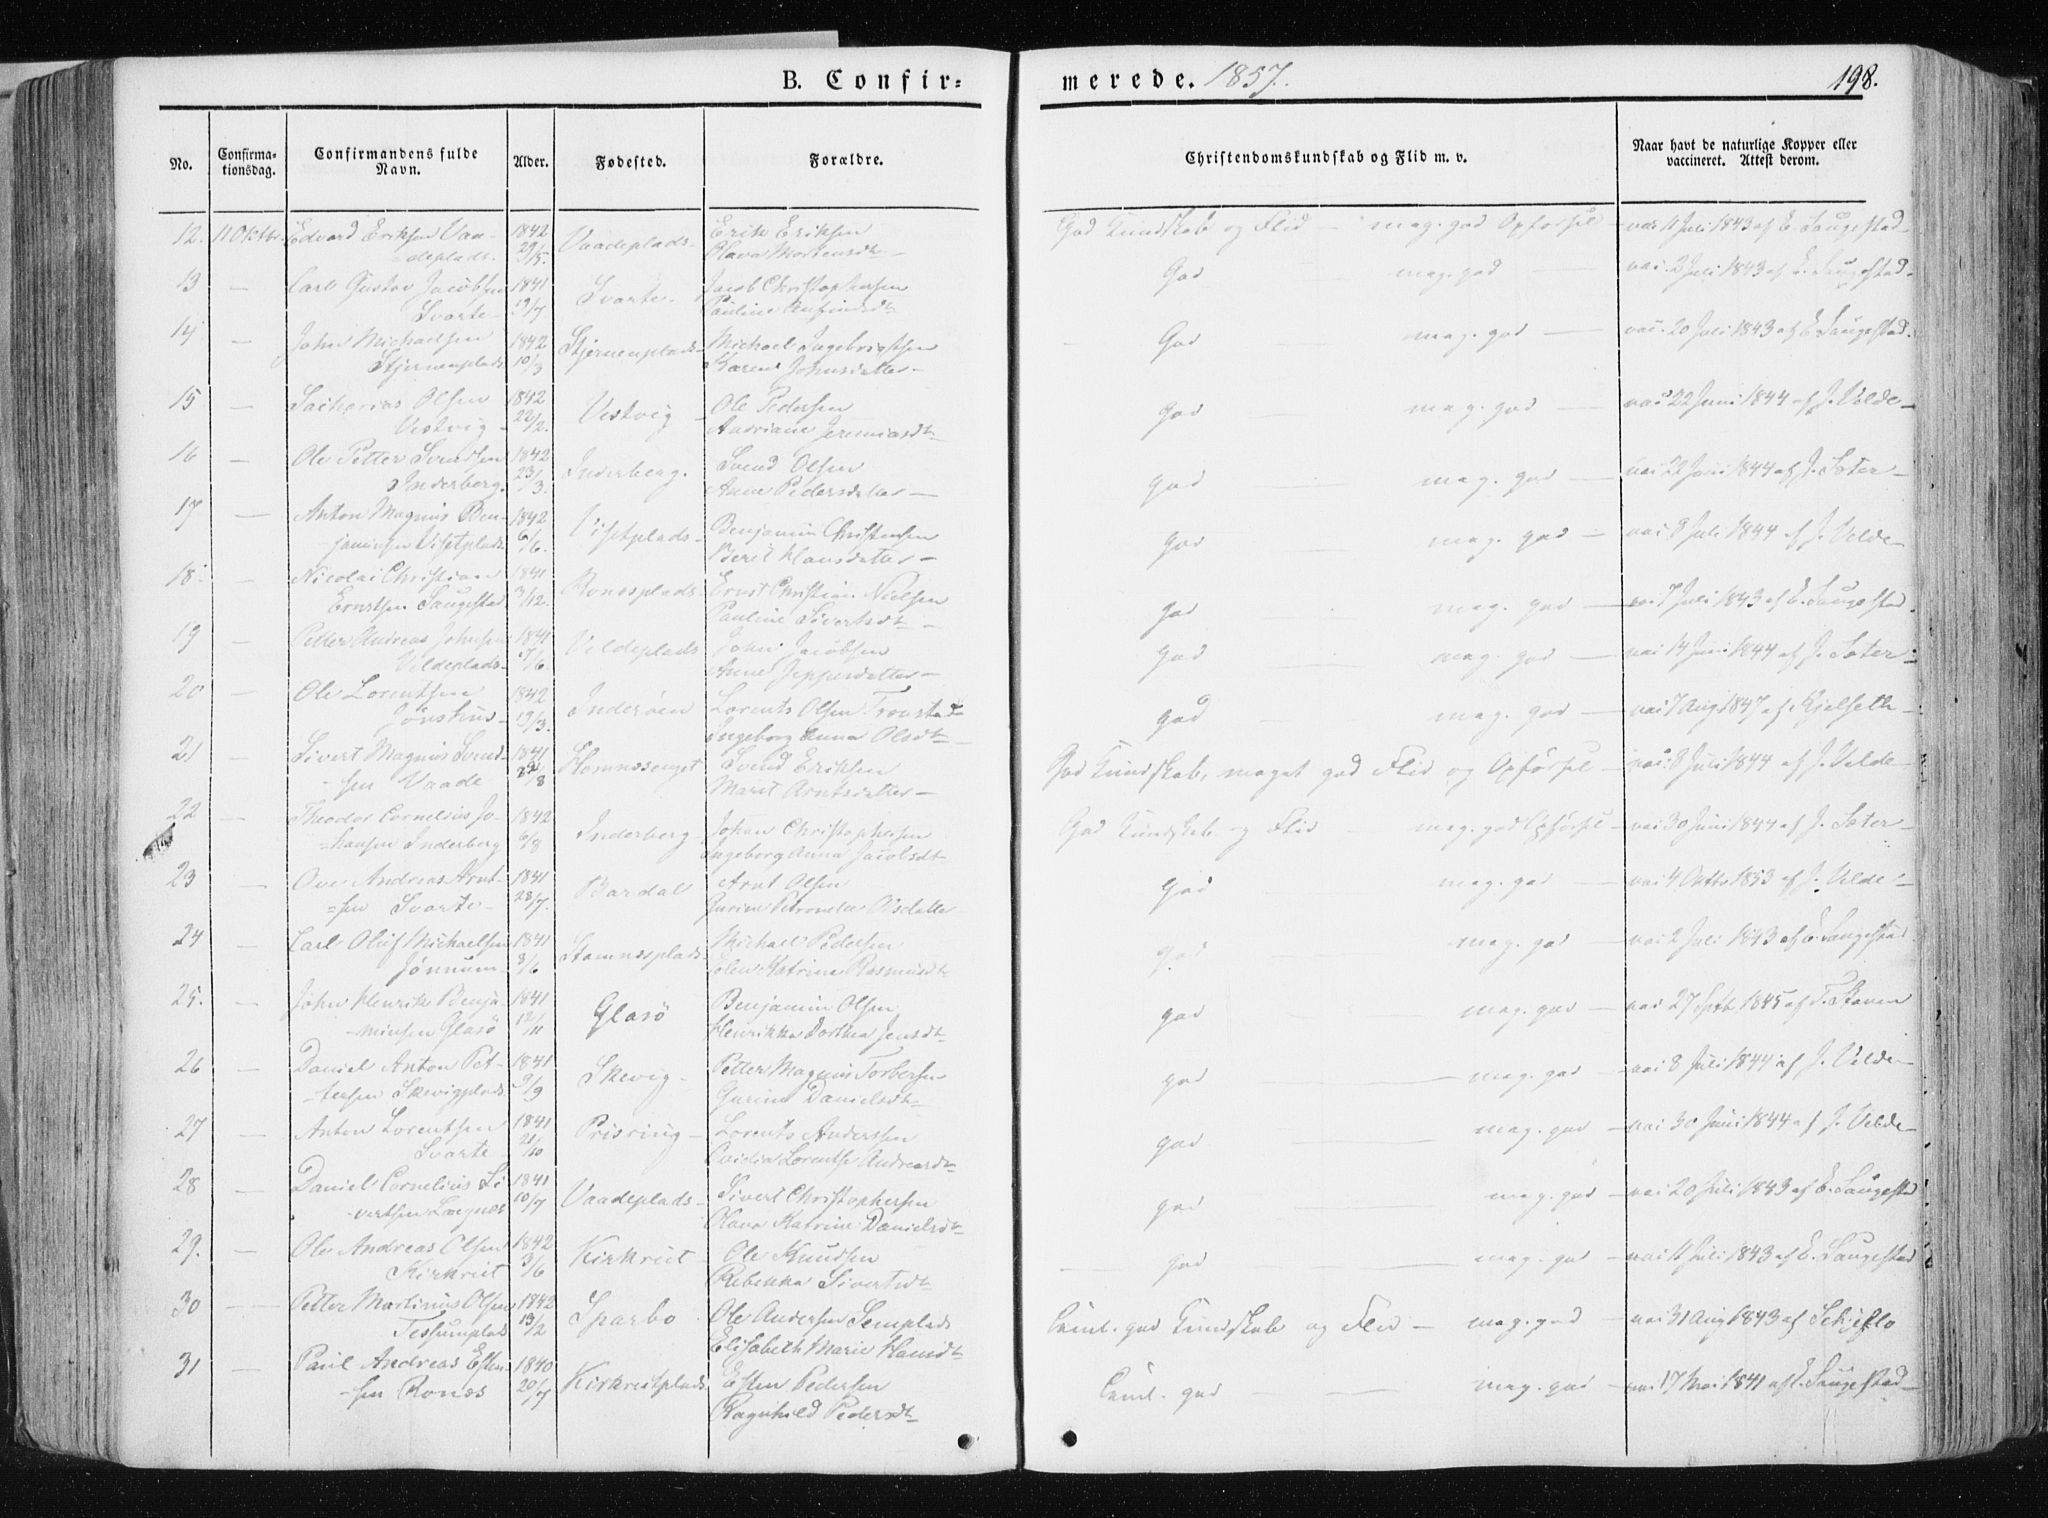 B. Confirmerede. 1857.
198.
No.
Confirmationsdag.
Confirmandens fulde Navn.
Alder.
Fødested.
Forældre.
Christendomskundskab og Flid m. v.
Naar havt de naturlige Kopper eller vaccineret. Attest derom.
12. 11 Oktbr. Edvard Eriksen Vaa- 1842 Vaadeplads- Erik Eriksen God Kundskab og Flid — meg. god Opførsel — vac. 11 Juli 1843 af E. Saugestad
-deplads. Olava Mortensdtr
13 — Carl Gustav Jacobsen 1841 Svarte- Jacob Christophersen God — meg. god — vac. 2 Juli 1843 af E. Saugestad.
Svarte- 19/7 Pauline
14 — John Michaelsen 1842 Stjernenplads- Michael Ingebrigtsen God — meg. god — vac. 20 Juli 1843 af E. Saugestad.
Stjernenplads 10/3 Karen Johnsdatter-
15 — Sacharias Olsen 1842 Vestvig- Ole Pedersen God — meg. god — vac 22 Juni 1844 af J. Velde-
Vestvig- 22/2. Andriane Jeremiasdt
16 — Ole Petter Svendsen 1842 Inderberg. Svend Olsen God — meg. god — vac 22 Juni 1844 af J. Soter-
Inderberg. 23/3. Anne Pedersdatter —
17 — Anton Magnus Ben- 1842 Vistplads- Benjamin Christensen God — meg. god — vac 8 Juli 1844 af J. Velde-
-jaminsen Vistplads. 6/6. Beret Hansdatter —
18. — Nicolai Christian 1841 Ronesplads- Ernst Christian Nielsen God — meg. god — vac. 7 Juli 1843 af E. Saugestad.
Ernstsen Saugestad 3/12. Pauline Sivertsdt —
19 — Petter Andreas Johnsen 1841 Veldeplads John Jacobsen God — meg. god — vac 14 Juni 1844 af J. Soter-
Veldeplads- 17/6. Anne Jeppesdatter —
20 — Ole Lorentsen 1842 Inderøen Lorents Olsen Tronstad God — meg. god — vac 7 Aug 1847 af Kjelseth-
13/3. Ingeborg Anna Olsdt
21 — Sivert Magnus Svend- 1841 Homnesenget Svend Eriksen God Kundskab, meget god Flid og Opførsel — vac. 8 Juli 1844 af J. Velde-
-sen Vaade Marit Arntsdatter —
22 — Theodor Cornelius Jo- 1842 Inderberg- Johan Christophersen God Kundskab og Flid — meg. god Opførsel — vac 30 Juni 1844 af J. Soter-
=hansen Inderberg 6/8 Ingeborg Anna Jacobsdt
23 — Ove Andreas Arnt- 1841 Bardal Arnt Olsen God — meg. god — vac 4 Oktb 1853 af J. Velde-
=sen Svarte- 28/7. Gurine Petronelle Olsdatter
24 — Carl Oluf Michaelsen 1841 Stamnesplads- Michael Pedersen God — meg. god — vac 2 Juli 1843 af E. Saugestad.
Jønnum- 8/6 Katrina Rasmusdt
25. — John Henrik Benja- 1841 Glasø Benjamin Olsen God — meg. god — vac 27 Septb 1845 af T. Staven
-minsen Glasø 12/11 Henrikka Dorthea Jensdt
26 — Daniel Anton Pet- 1841 Skevig- Petter Magnus Torbersen God — meg. god — vac 8 Juli 1844 af J. Velde-
-tersen Skevigplads 9/9 Gurine Danielsdt-
27 — Anton Lorentsen 1841 Prisring- Lorents Andersen God — meg. god — vac 30 Juni 1844 af J. Velde-
Svarte 21/10 Lorentse Andreasdt
28 — Daniel Cornelius Si- 1841 Vaadeplads- Sivert Christophersen God — meg. god — vac 20 Juli 1843 af E. Saugestad
-vertsen Lægnes 10/7 Olava Katrine Danielsdt
29. — Ole Andreas Olsen 1842 Kirkreit Ole Knudsen God — meg. god — vac 11 Juli 1843 af E. Saugestad
Kirkreit 3/6 Rebekka Sivertsdt
30 — Petter Martinus Olsen 1842 Sparbo Ole Andersen Semplads Teml. god Kundskab og Flid — meg. god — vac 31 Aug 1843 af Schieflo
Tessumplads 13/2 Elisabeth Marie
31 — Paul Andreas Esten- 1840 Kirkreitplads Esten Pedersen Teml. god — meg. god — vac 17 Mai 1841 af E. Saugestad-
-sen Rones 20/7 Ragnhild Pedersdt